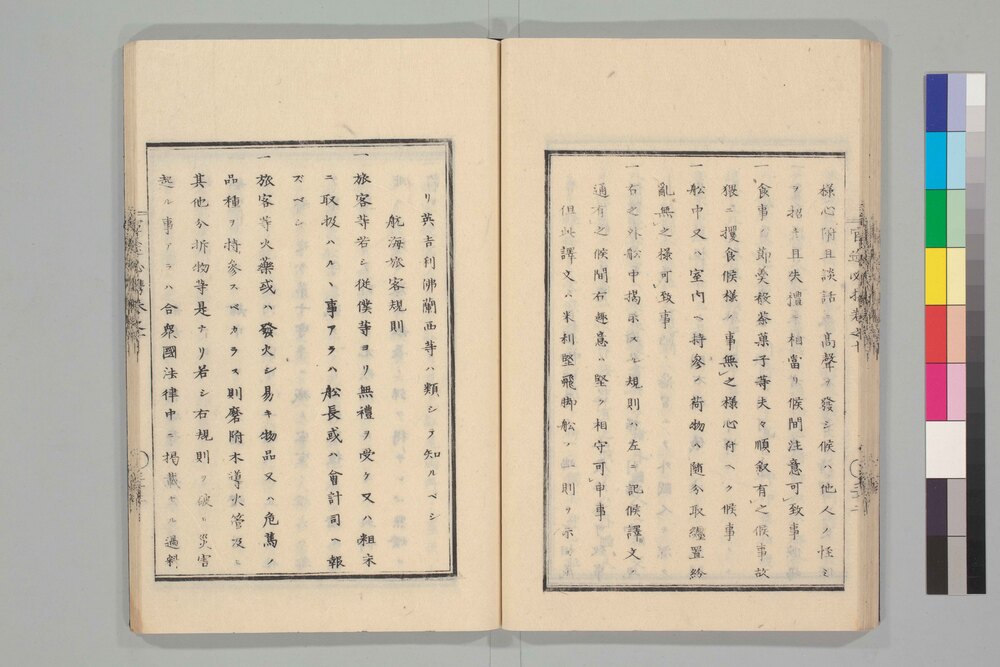 様心附且談話ニ高聲ヲ發シ候ハ他人ノ怪ミ
ヲ招キ且失禮ニ相當リ候間注意可致事
一食事ノ節羹殽茶菓子等夫々順叙有之候事故
猥ニ攫食候様ノ事無之様心付ヘク候事
一舩中又ハ室内ヘ持參ノ荷物ハ随分取纒置紛
亂無之様可致事
一右之外舩中揭示スル規則ハ左ニ記候譯文ノ
通有之候間右趣意ハ堅ク相守可申事
但此譯文ハ米利堅飛脚舩ノ出則ヲ示
リ英吉利佛蘭西等ハ類シテ知ルベシ
航海旅客規則
一旅客等若シ従僕等ヨリ無禮ヲ受ケ又ハ粗末
ニ取扱ハル丶事アラハ舩長或ハ會計司ヘ報
ズベシ
一旅客等火藥或ハ發火シ易キ物品又ハ危篤ノ
品種ヲ持參スベカラス則磨附木導火管及ヒ
其他分拆物等是ナリ若シ右規則ヲ破リ災害
起ル事アラハ合衆國法律中ニ揭載セル過料